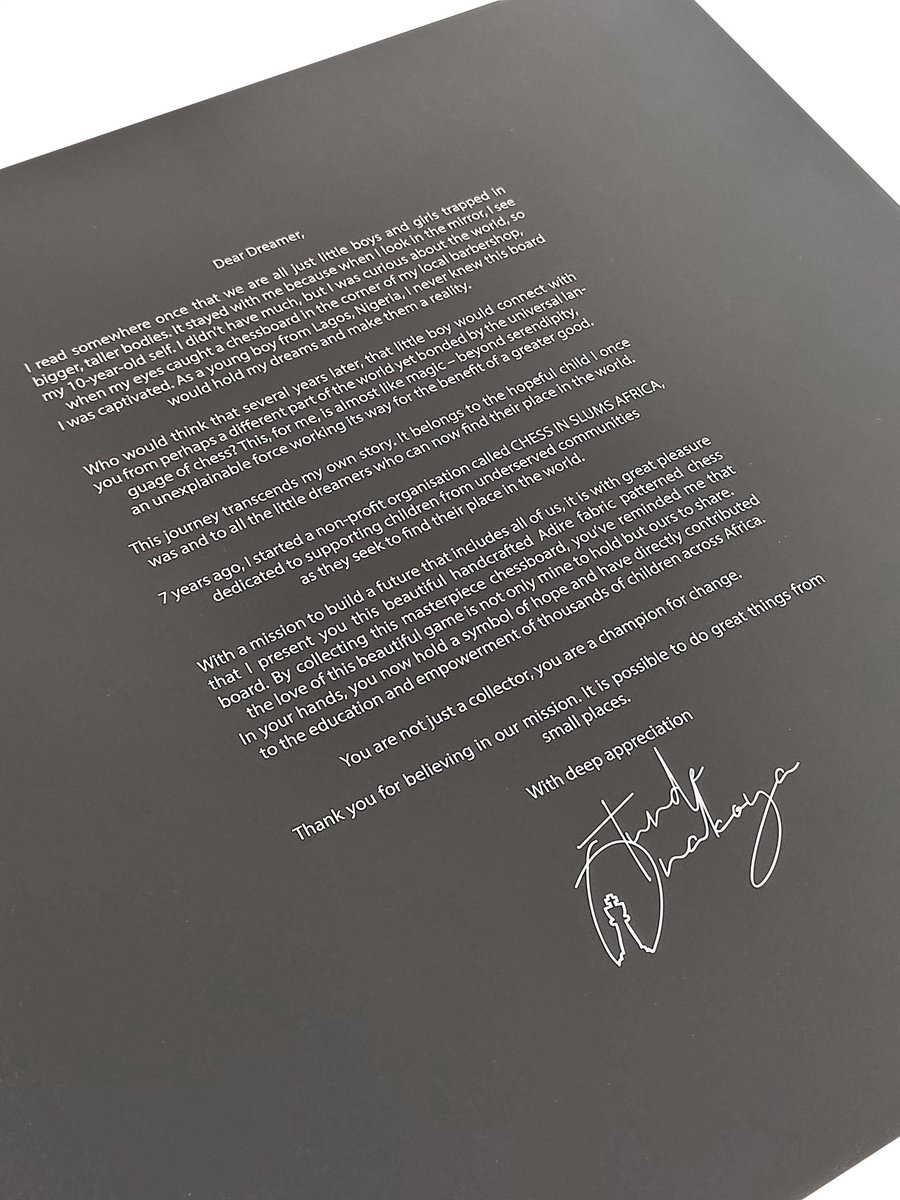 Dear Dreamer,
I read somewhere once that we are all just little boys and girls trapped in
bigger, taller bodies. It stayed with me because when I look in the mirror, I see
my 10-year-old self. I didn't have much, but I was curious about the world, so
when my eyes caught a chessboard in the corner of my local barbershop,
I was captivated. As a young boy from Lagos, Nigeria, I never knew this board
would hold my dreams and make them a reality.
Who would think that several years later, that little boy would connect with
you from perhaps a different part of the world yet bonded by the universal lan-
guage of chess? This, for me, is almost like magic – beyond serendipity,
an unexplainable force working its way for the benefit of a greater good.
This journey transcends my own story. It belongs to the hopeful child I once
was and to all the little dreamers who can now find their place in the world.
7 years ago, I started a non-profit organisation called CHESS IN SLUMS AFRICA,
dedicated to supporting children from underserved communities
as they seek to find their place in the world.
With a mission to build a future that includes all of us, it is with great pleasure
that I present you this beautiful handcrafted Adire fabric patterned chess
board. By collecting this masterpiece chessboard, you've reminded me that
the love of this beautiful game is not only mine to hold but ours to share.
In your hands, you now hold a symbol of hope and have directly contributed
to the education and empowerment of thousands of children across Africa.
You are not just a collector, you are a champion for change.
Thank you for believing in our mission. It is possible to do great things from
small places.
With deep appreciation
Tunde
Onakoya